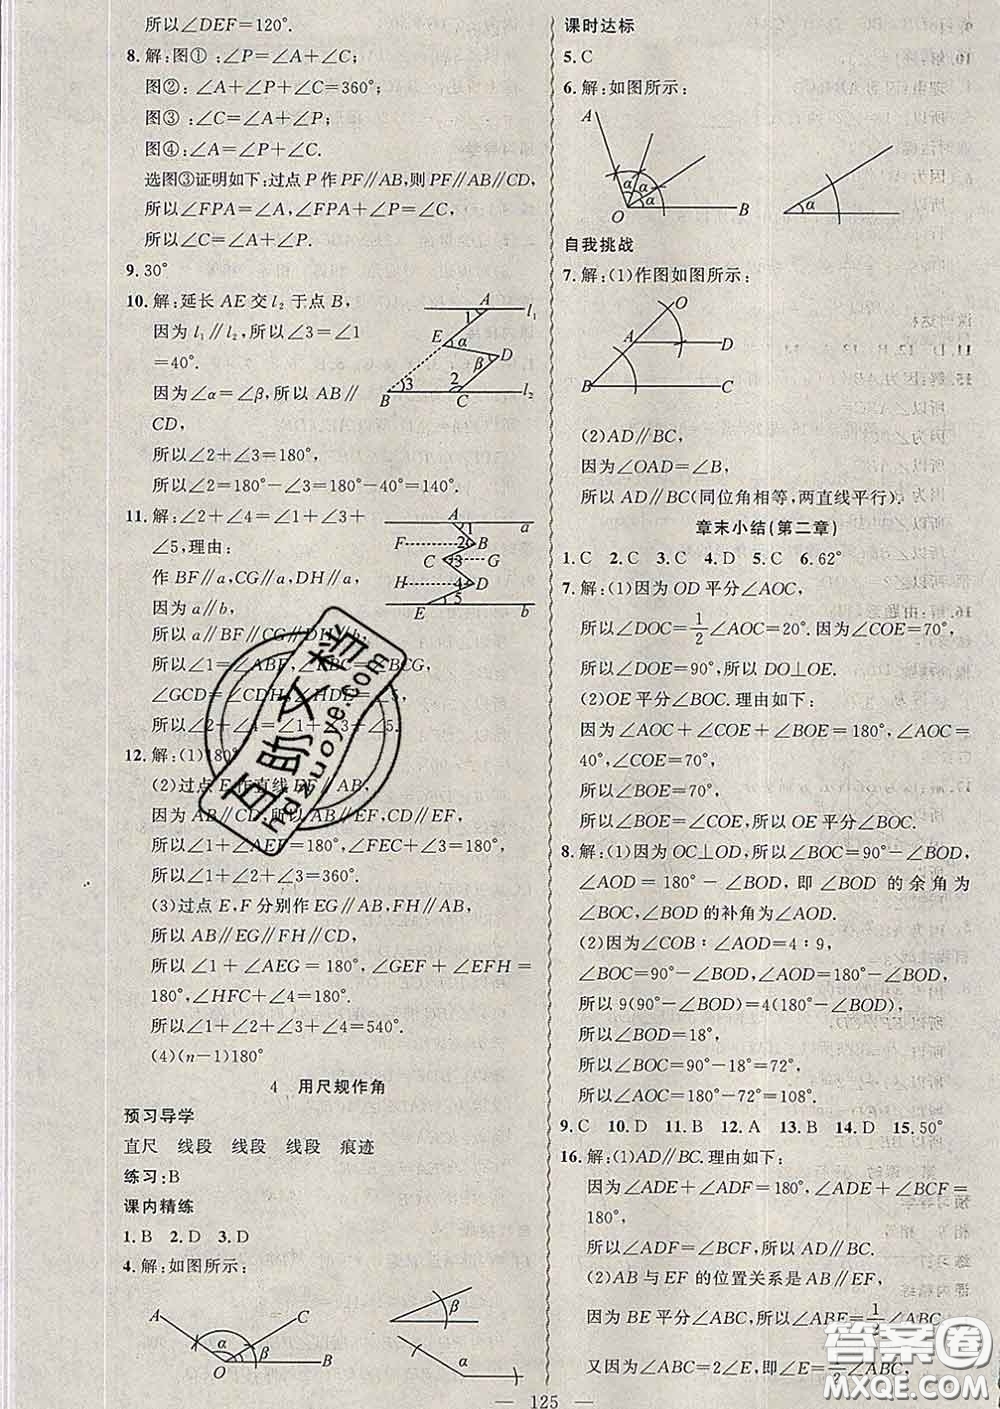 所以∠DEF=120°.
8.解:图①:∠P=∠A+∠C;
图②:∠A+∠P+∠C=360°;
图③:∠C=∠A+∠P;
图④:∠A=∠P+∠C.
选图③证明如下:过点P作PF∥AB,则PF∥AB∥CD,
所以∠FPA=∠A,∠FPC=∠C,
所以∠C=∠A+∠P.
9.30°
10.解:延长AE交l₂于点B,
因为l₁∥l₂,所以∠3=∠1
=40°.
因为∠α=∠β,所以AB∥
CD,
所以∠2+∠3=180°,
所以∠2=180°-∠3=180°-40°=140°.
A
1
l₁
E
α
D
β
3
2
B
C
l₂
11.解:∠2+∠4=∠1+∠3+
∠5,理由:
作BF∥a,CG∥a,DH∥a,
因为a∥b,
所以a∥BF∥CG∥DH∥b,
所以∠1=∠ABF,∠FBC=∠BCG,
∠GCD=∠CDH,∠HDE=∠5,
所以∠2+∠4=∠1+∠3+∠5.
A
1
a
F
2
B
C
3
G
H
4
D
E
5
b
12.解:(1)180°
(2)过点E作直线EF∥AB,
因为AB∥CD,所以AB∥EF,CD∥EF,
所以∠1+∠AEF=180°,∠FEC+∠3=180°,
所以∠1+∠2+∠3=360°.
(3)过点E,F分别作EG∥AB,FH∥AB,
所以AB∥EG∥FH∥CD,
所以∠1+∠AEG=180°,∠GEF+∠EFH=
180°,∠HFC+∠4=180°,
所以∠1+∠2+∠3+∠4=540°.
(4)(n-1)180°
4 用尺规作角
预习导学
直尺 线段 线段 线段 痕迹
练习:B
课内精练
1.B 2.D 3.D
4.解:如图所示:
A
C
α
O
B
β
β
课时达标
5.C
6.解:如图所示:
A
α
α
α
O
B
α
自我挑战
7.解:(1)作图如图所示:
O
A
D
B
C
(2)AD∥BC,
因为∠OAD=∠B,
所以AD∥BC(同位角相等,两直线平行).
章末小结(第二章)
1.C 2.C 3.C 4.D 5.C 6.62°
7.解:(1)因为OD平分∠AOC,
所以∠DOC=1/2∠AOC=20°.因为∠COE=70°,
所以∠DOE=90°,所以DO⊥OE.
(2)OE平分∠BOC.理由如下:
因为∠AOC+∠COE+∠BOE=180°,∠AOC=
40°,∠COE=70°,
所以∠BOE=70°,
所以∠BOE=∠COE,所以OE平分∠BOC.
8.解:(1)因为OC⊥OD,所以∠BOC=90°-∠BOD,
∠AOD=180°-∠BOD,即∠BOD的余角为
∠BOC,∠BOD的补角为∠AOD.
(2)因为∠COB:∠AOD=4:9,
∠BOC=90°-∠BOD,∠AOD=180°-∠BOD,
所以9(90°-∠BOD)=4(180°-∠BOD),
所以∠BOD=18°,
所以∠BOC=90°-18°=72°,
所以∠AOC=180°-72°=108°.
9.C 10.D 11.B 12.A 13.B 14.D 15.50°
16.解:(1)AD∥BC.理由如下:
因为∠ADE+∠ADF=180°,∠ADE+∠BCF=
180°,
所以∠ADF=∠BCF,所以AD∥BC.
(2)AB与EF的位置关系是AB∥EF,
因为BE平分∠ABC,所以∠ABE=1/2∠ABC.
又因为∠ABC=2∠E,即∠E=1/2∠ABC,
125
自助文档
hdzuoye.com
答案圈
MXQE.COM